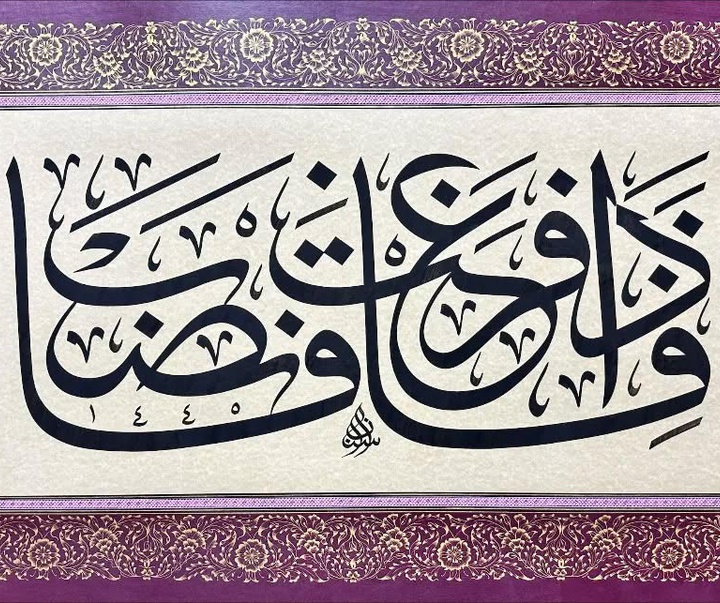 فَإِذَا فَرَغْتَ فَانْصَبْ
١٤٤٥